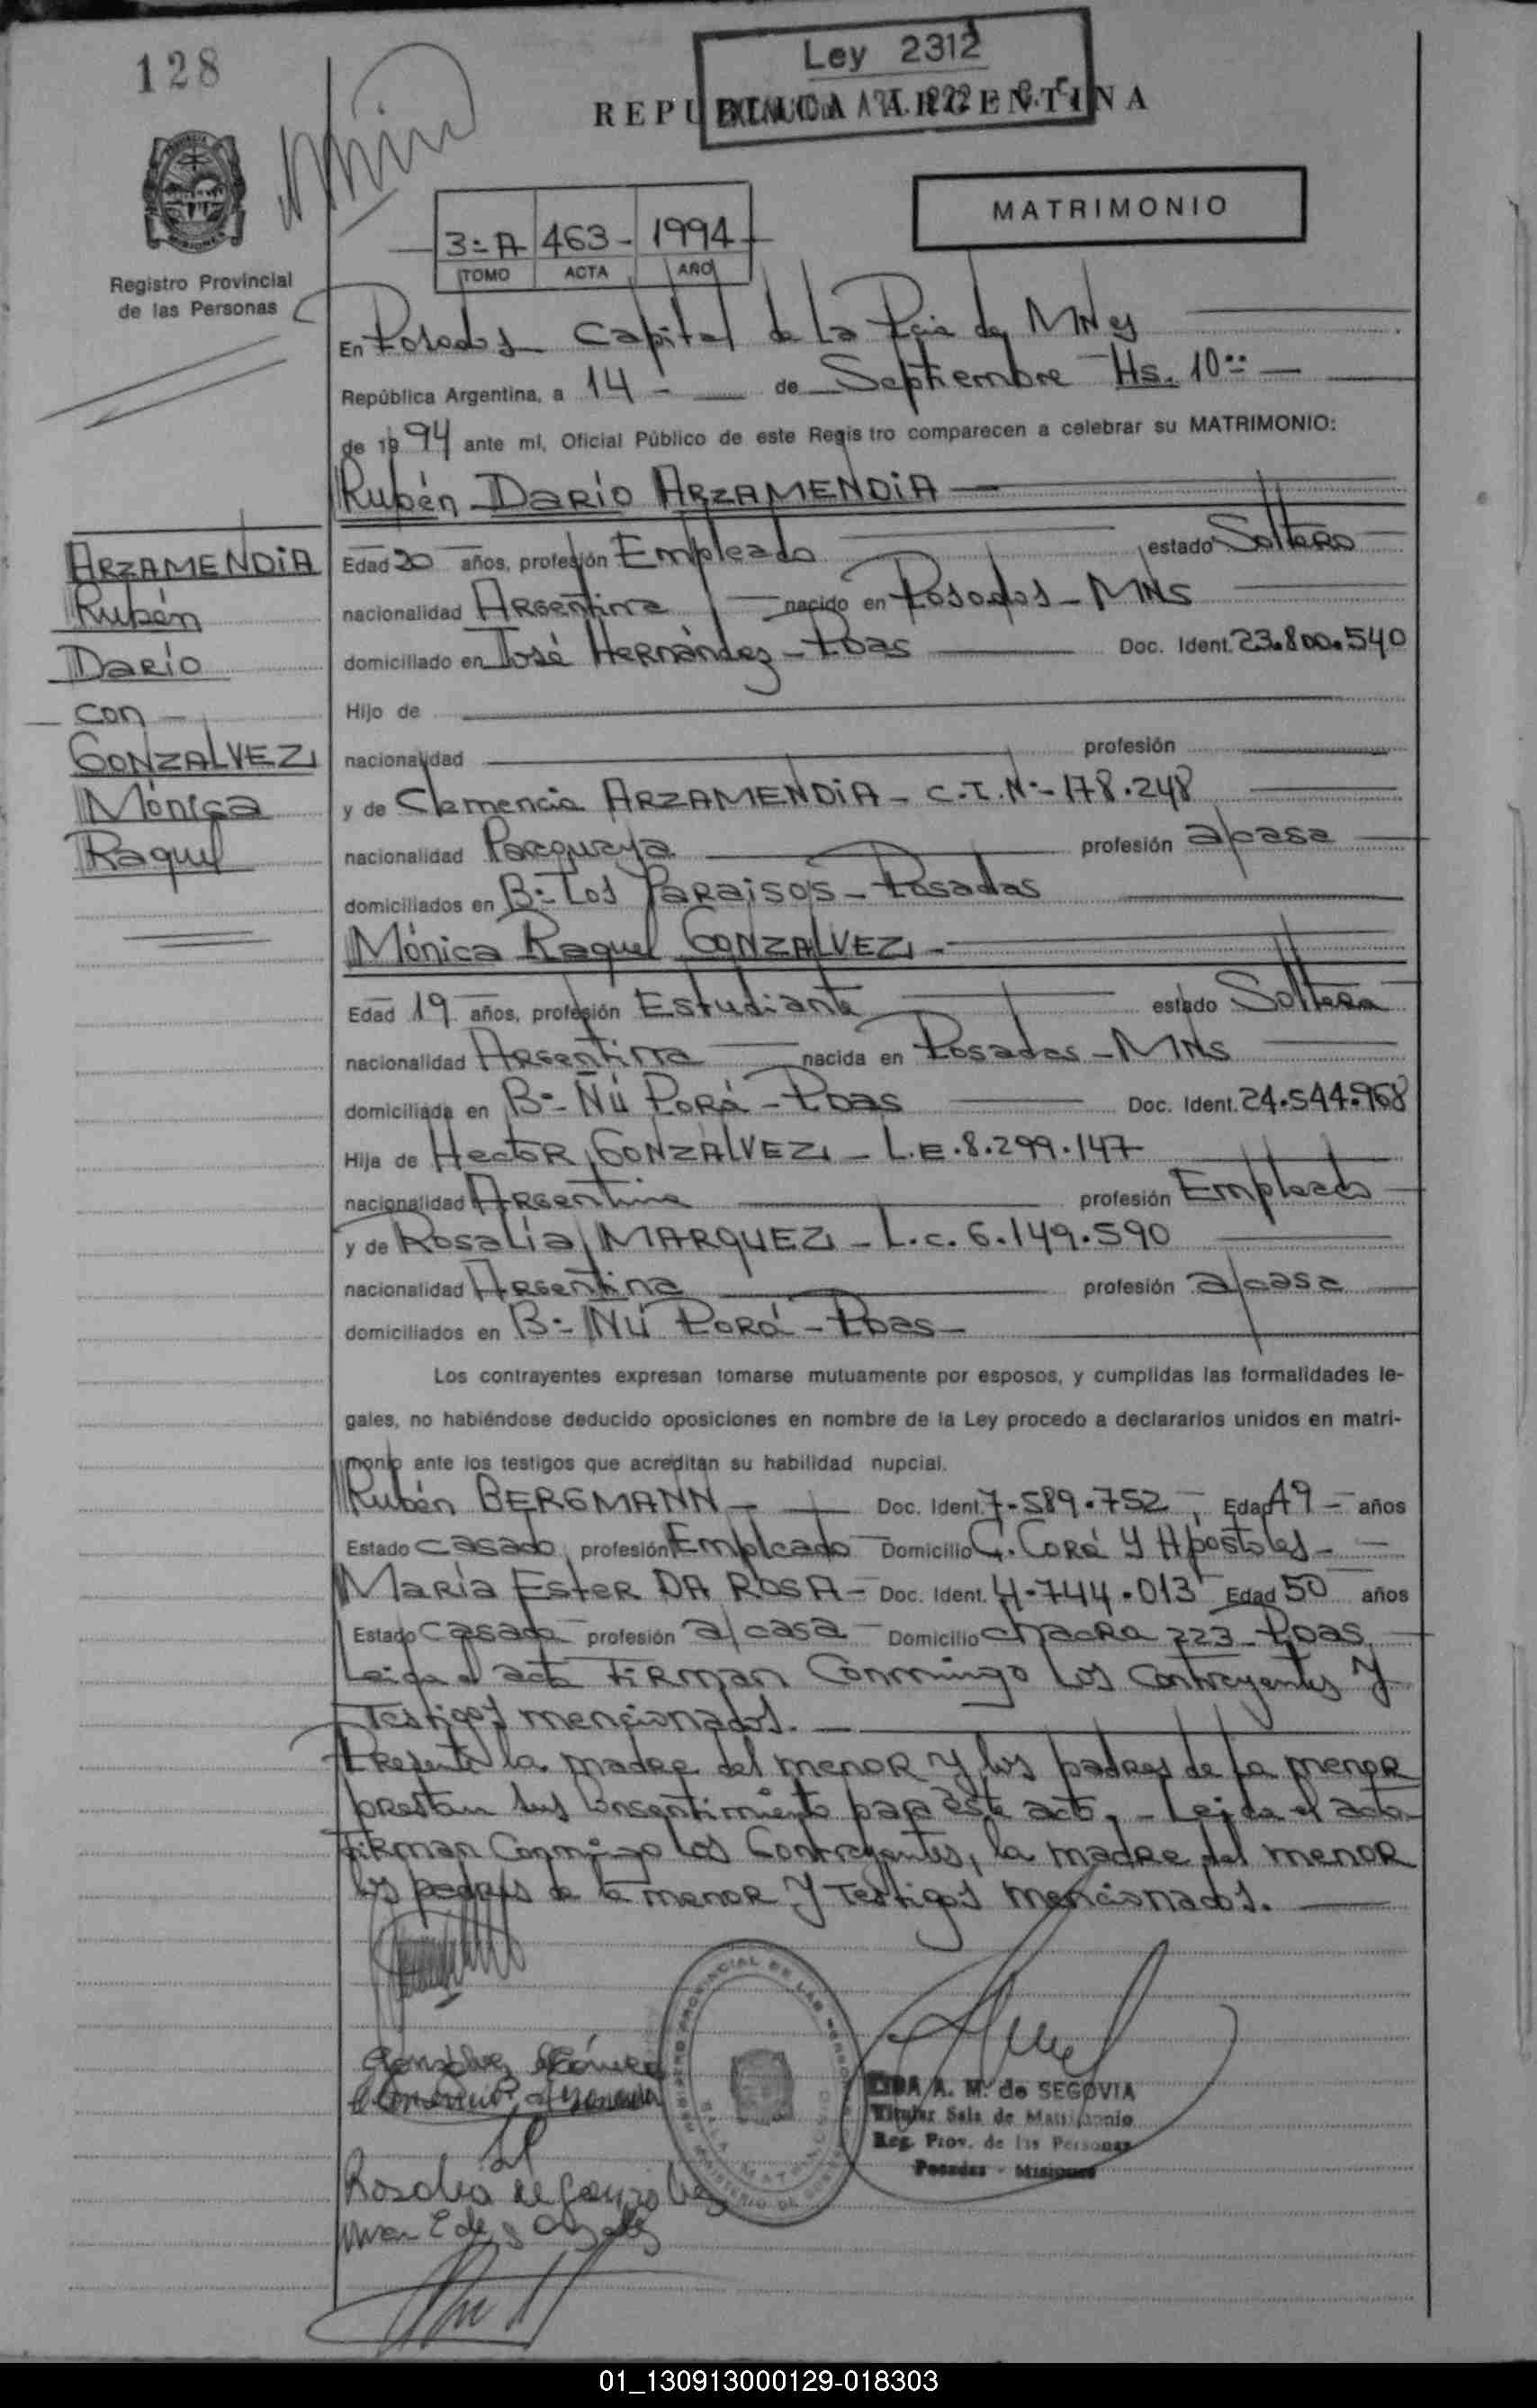 128
Ley 2312
REPUBLICA ARGENTINA
MATRIMONIO
3=A 463- 1994
TOMO ACTA AÑO
Registro Provincial
de las Personas
En Posadas Capital de La Pcia de MNes
República Argentina, a 14 - de Septiembre Hs. 10
de 1994 ante mí, Oficial Público de este Registro comparecen a celebrar su MATRIMONIO:
Rubén Darío ARZAMENDIA
ARZAMENDIA
Rubén
Darío
con
GONZALVEZ
Mónica
Raquel
Edad 20 años, profesión Empleado estado Soltero
nacionalidad Argentina nacido en Posadas - MNS
domiciliado en José Hernández - Pdas Doc. Ident. 23.800.540
Hijo de
nacionalidad profesión
y de Clemencia ARZAMENDIA - C.I.Nº- 178.248
nacionalidad Paraguaya profesión a/casa
domiciliados en Bº- Los Paraisos - Posadas
Mónica Raquel GONZALVEZ -
Edad 19 años, profesión Estudiante estado Soltera
nacionalidad Argentina nacida en Posadas - MNS
domiciliada en Bº- Ñú Porá - Pdas Doc. Ident. 24.544.968
Hija de Hector GONZALVEZ - L.E. 8.299.147
nacionalidad Argentina profesión Empleado
y de Rosalía MARQUEZ - L.c. 6.149.590
nacionalidad Argentina profesión a/casa
domiciliados en Bº- Ñú Porá - Pdas -
Los contrayentes expresan tomarse mutuamente por esposos, y cumplidas las formalidades le-
gales, no habiéndose deducido oposiciones en nombre de la Ley procedo a declararlos unidos en matri-
monio ante los testigos que acreditan su habilidad nupcial.
Rubén BERGMANN - Doc. Ident. 7.589.752 - Edad 49 - años
Estado casado profesión Empleado Domicilio C. Corá y Apostoles -
María Ester DA ROSA - Doc. Ident. 4.744.013 Edad 50 años
Estado casada profesión a/casa Domicilio chacra 223 - Pdas
Leida el acta firman Conmigo los contrayentes y
Testigos mencionados.
Presente la madre del menor y los padres de la menor
prestan sus consentimiento para éste acto. - Leida el acta
firman Conmigo los Contrayentes, la madre del menor
los padres de la menor y testigos mencionados.
Gonzalvez Mónica
Clemencia Arzamendia
Rosalia de Gonzalvez
LIDIA A. M. de SEGOVIA
Titular Sala de Matrimonio
Reg. Prov. de las Personas
Posadas - Misiones
01_130913000129-018303